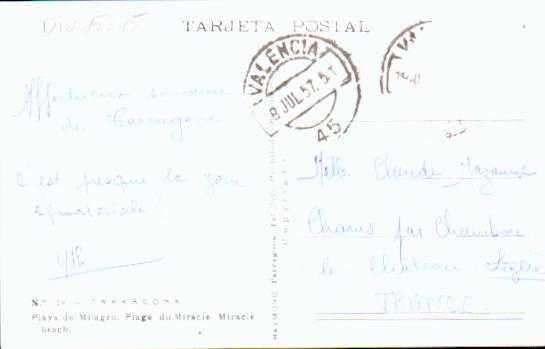 DIV 15245
TARJETA POSTAL
VALENCIA
8 JUL 57. 5.T
45
Affectueux souvenir
de Tarragone
C'est presque la zone
équatoriale !
Nº 19 - TARRAGONA
Playa del Milagro. Plage du Miracle. Miracle
beach.
RAYMOND Tarragona
Copyright
Melle Claude
Chams par Chambon
le Château Lozère
FRANCE